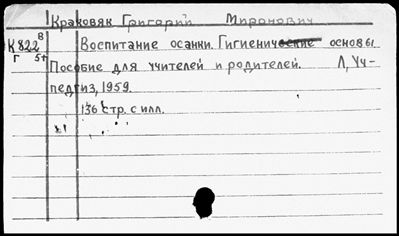 Краковяк Григорий Миронович
К822 8
Г 5+
Воспитание осанки. Гигиенические основы.
Пособие для учителей и родителей. Л, Уч-
педгиз, 1959.
136 стр. с илл.